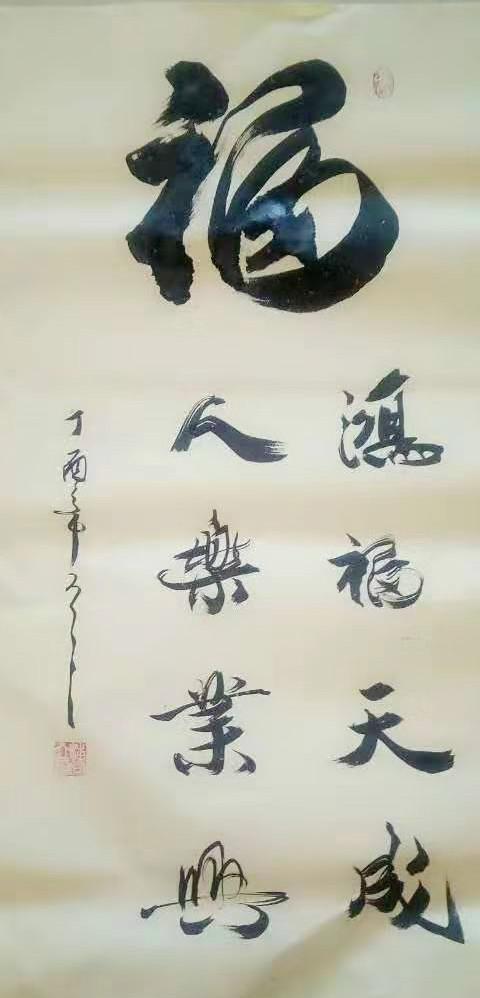 福
鸿福天成
人樂業興
丁酉年